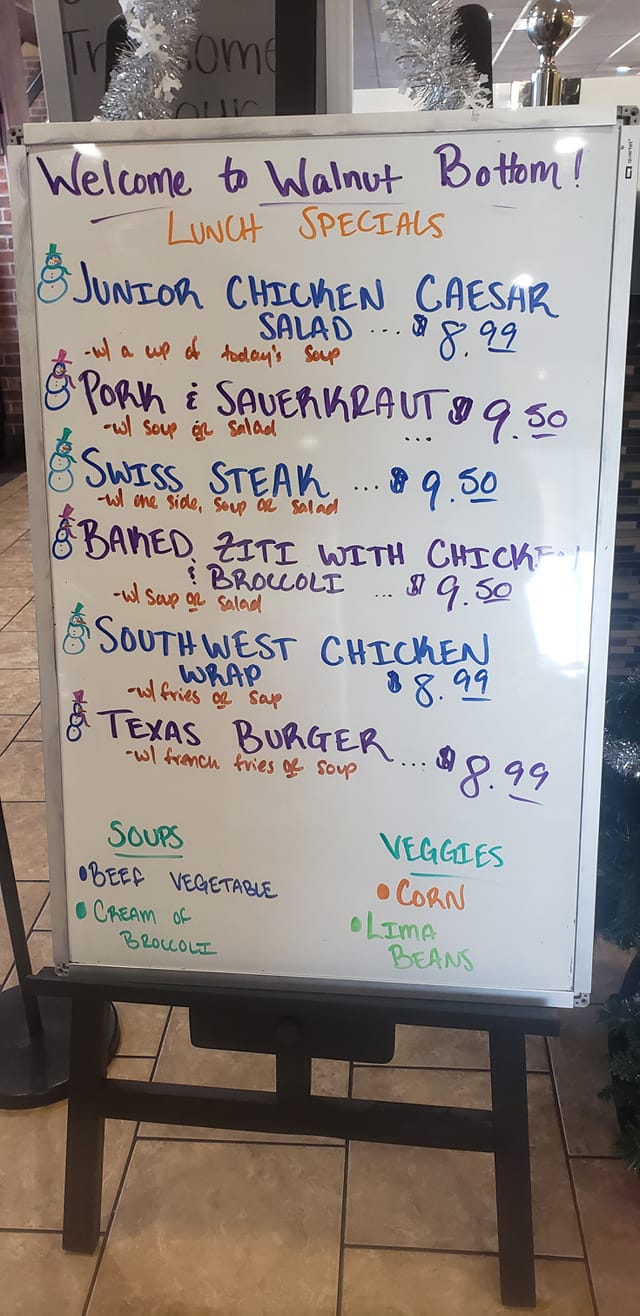 Welcome to Walnut Bottom!
LUNCH SPECIALS
JUNIOR CHICKEN CAESAR
SALAD ... $8.99
-w/ a cup of today's soup
PORK & SAUERKRAUT $9.50
-w/ soup or salad ...
SWISS STEAK ... $9.50
-w/ one side, soup or salad
BAKED ZITI WITH CHICKEN
& BROCCOLI ... $9.50
-w/ soup or salad
SOUTHWEST CHICKEN
WRAP $8.99
-w/ fries or soup
TEXAS BURGER ... $8.99
-w/ french fries or soup
SOUPS
•BEEF VEGETABLE
•CREAM OF
BROCCOLI
VEGGIES
•CORN
•LIMA
BEANS